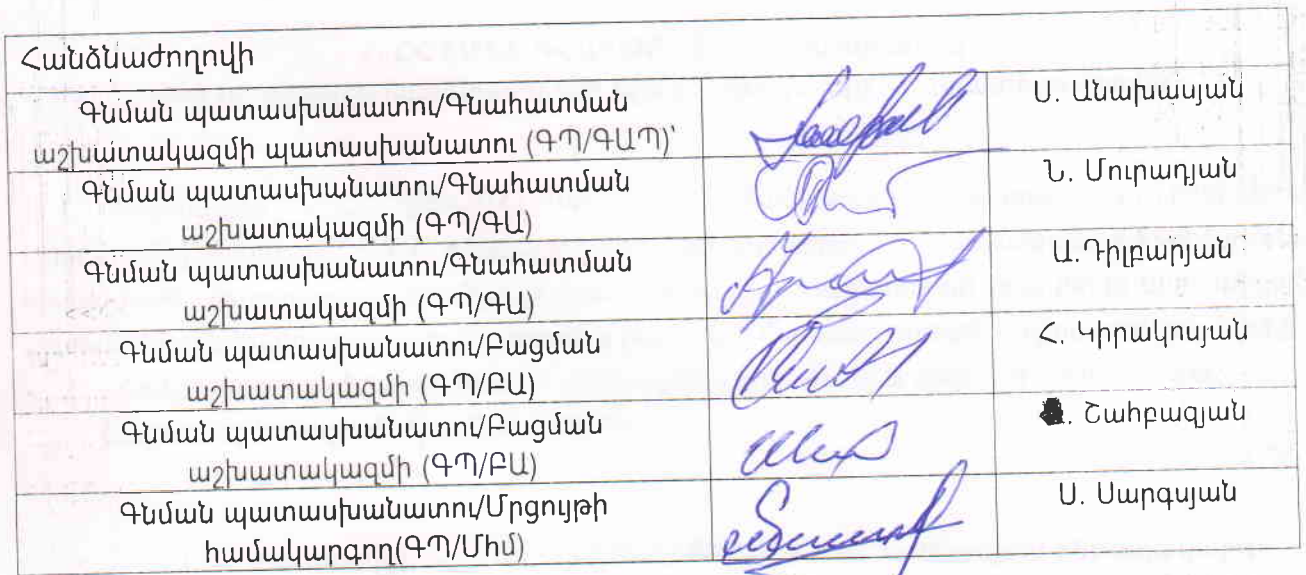 Հանձնաժողովի
Գնման պատասխանատու/Գնահատման
աշխատակազմի պատասխանատու (ԳՊ/ԳԱՊ)՝
Ս. Անախասյան
Գնման պատասխանատու/Գնահատման
աշխատակազմի (ԳՊ/ԳԱ)
Ն. Մուրադյան
Գնման պատասխանատու/Գնահատման
աշխատակազմի (ԳՊ/ԳԱ)
Ա.Դիլբարյան
Գնման պատասխանատու/Բացման
աշխատակազմի (ԳՊ/ԲԱ)
Հ. Կիրակոսյան
Գնման պատասխանատու/Բացման
աշխատակազմի (ԳՊ/ԲԱ)
. Շահբազյան
Գնման պատասխանատու/Մրցույթի
համակարգող(ԳՊ/Մհմ)
Ս. Սարգսյան